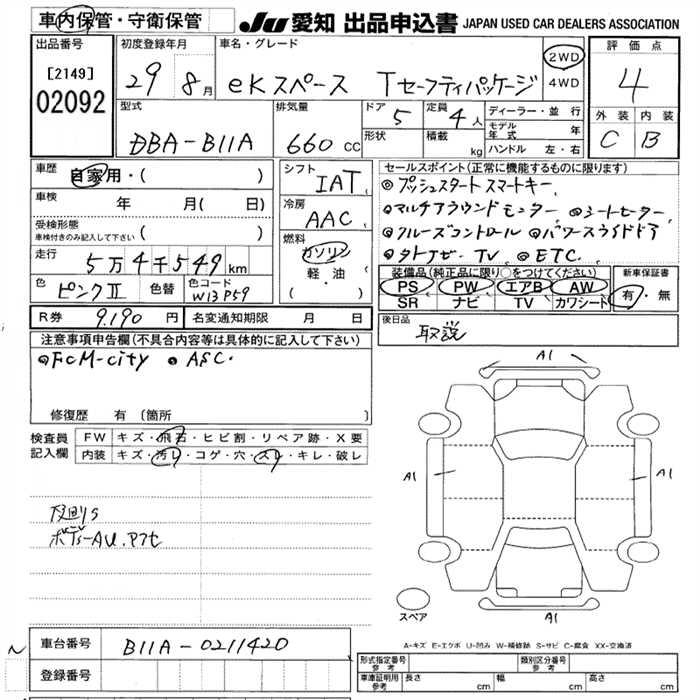 車内保管・守衛保管 JU 愛知 出品申込書 JAPAN USED CAR DEALERS ASSOCIATION
出品番号 [2149] 02092
初度登録年月 29 8月
車名・グレード eKスペース Tセーフティパッケージ
2WD 4WD
評価点 4
外装 内装
C B
型式 DBA-B11A
排気量 660 CC
ドア 5 定員 4人
形状 積載 kg
ディーラー・並行
モデル年式 年
ハンドル 左・右
車歴 自家用・( )
車検 年 月( 日)
受検形態 車検付きのみ記入して下さい ( )
走行 5万4千549km
色 ピンクII 色替 色コード W13P59
シフト IAT
冷房 AAC
燃料 ガソリン・軽油・( )
セールスポイント(正常に機能するものに限ります)
◎プッシュスタートスマートキー
◎マルチアラウンドモニター ◎シートヒーター
◎クルーズコントロール ◎パワースライドドア
◎ナビ. TV ◎ETC.
装備品(純正品に限り○をつけてください)
PS PW エアB AW
SR ナビ TV カワシート
新車保証書 有・無
R券 9.190 円 名変通知期限 月 日
後日品 取説
注意事項申告欄(不具合内容等は具体的に記入して下さい)
◎FCM-city ◎ASC.
修復歴 有 (箇所
検査員記入欄
FW キズ・飛石・ヒビ割・リペア跡・X要
内装 キズ・汚レ・コゲ・穴・スレ・キレ・破レ
下廻りS
ボディーAU.P7t
A1
A1
A1
A1
スペア
A-キズ E-エクボ U-凹み W-補修跡 S-サビ C-腐食 XX-交換済
N
車台番号 B11A-0211420
登録番号
形式指定番号 参考 類別区分番号 参考
車庫証明用 参考 長さ cm 幅 cm 高さ cm